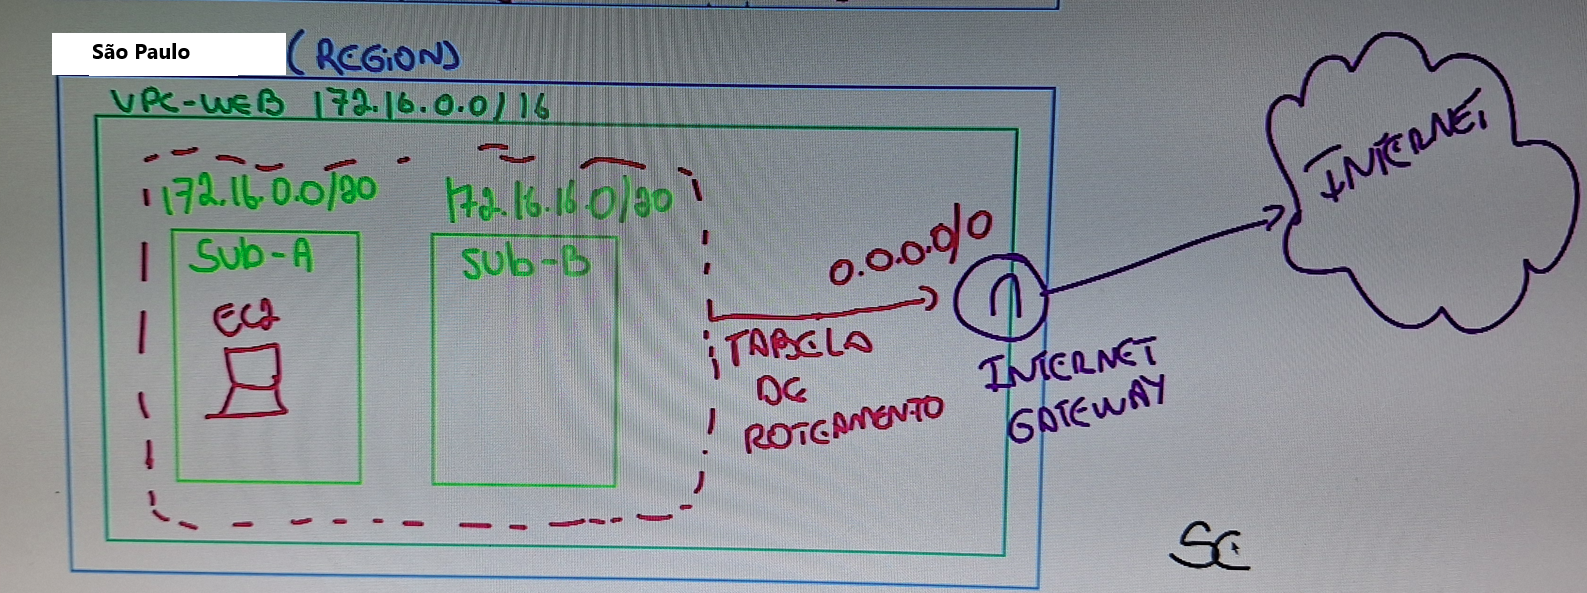 São Paulo (REGION)
VPC-WEB 172.16.0.0/16
172.16.0.0/20
172.16.16.0/20
Sub-A
Sub-B
EC2
0.0.0.0/0
TABELA
DE
ROTEAMENTO
INTERNET
GATEWAY
INTERNET
SG